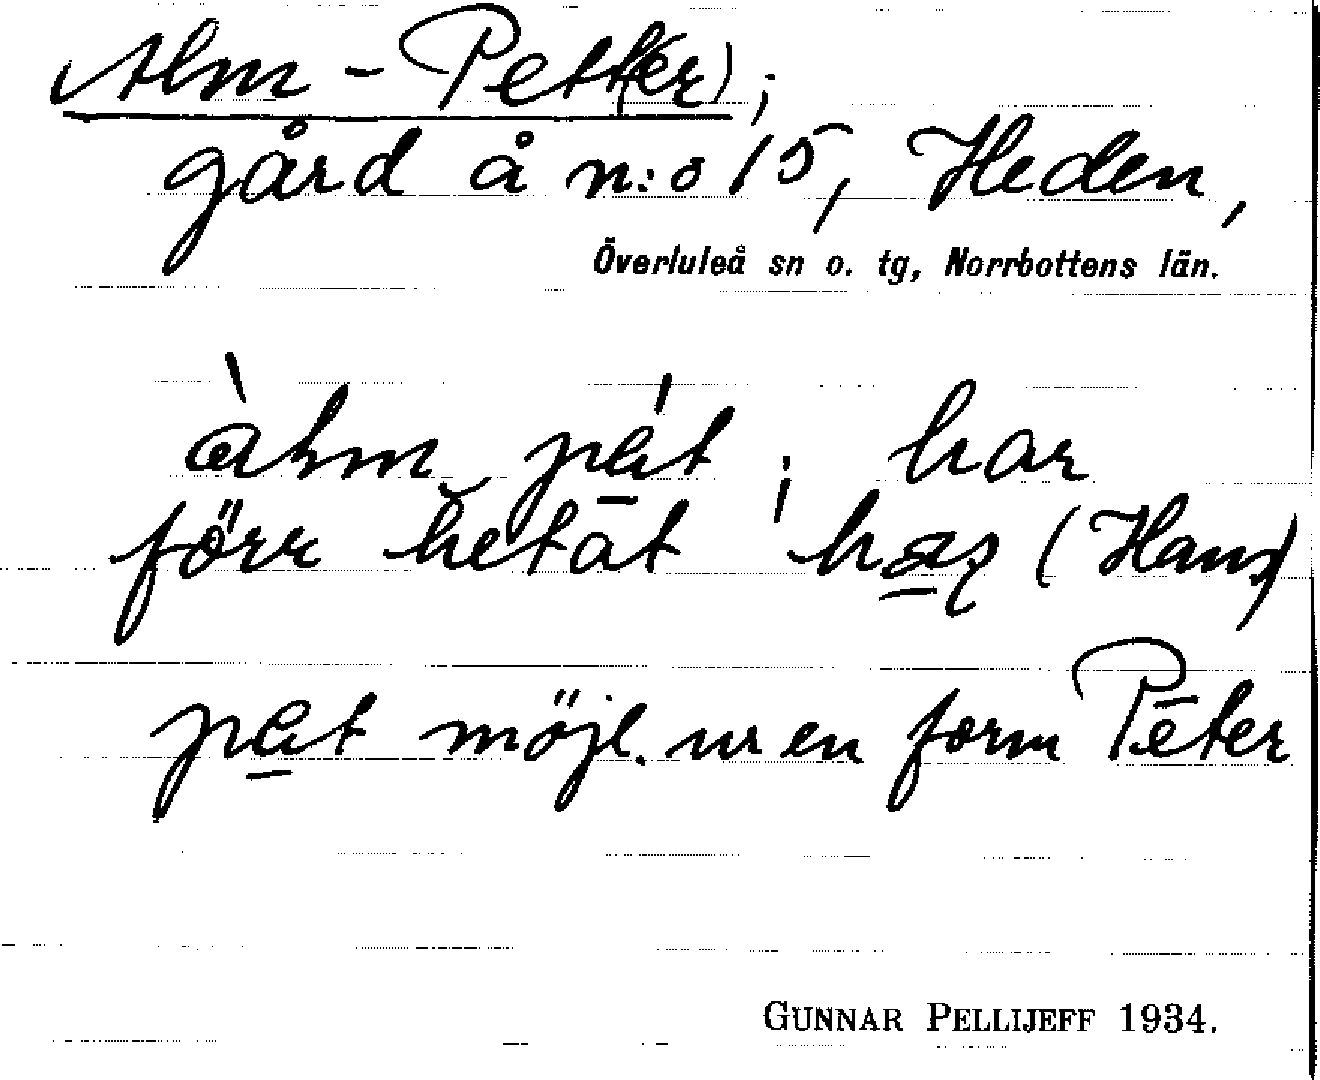 Alm-Pett(er);
gård å n:o 15, Heden,
Överluleå sn o. tg, Norrbottens län.
pet; har
förr hetat (Hans)
möjl. ur en form Pēter
GUNNAR PELLIJEFF 1934.